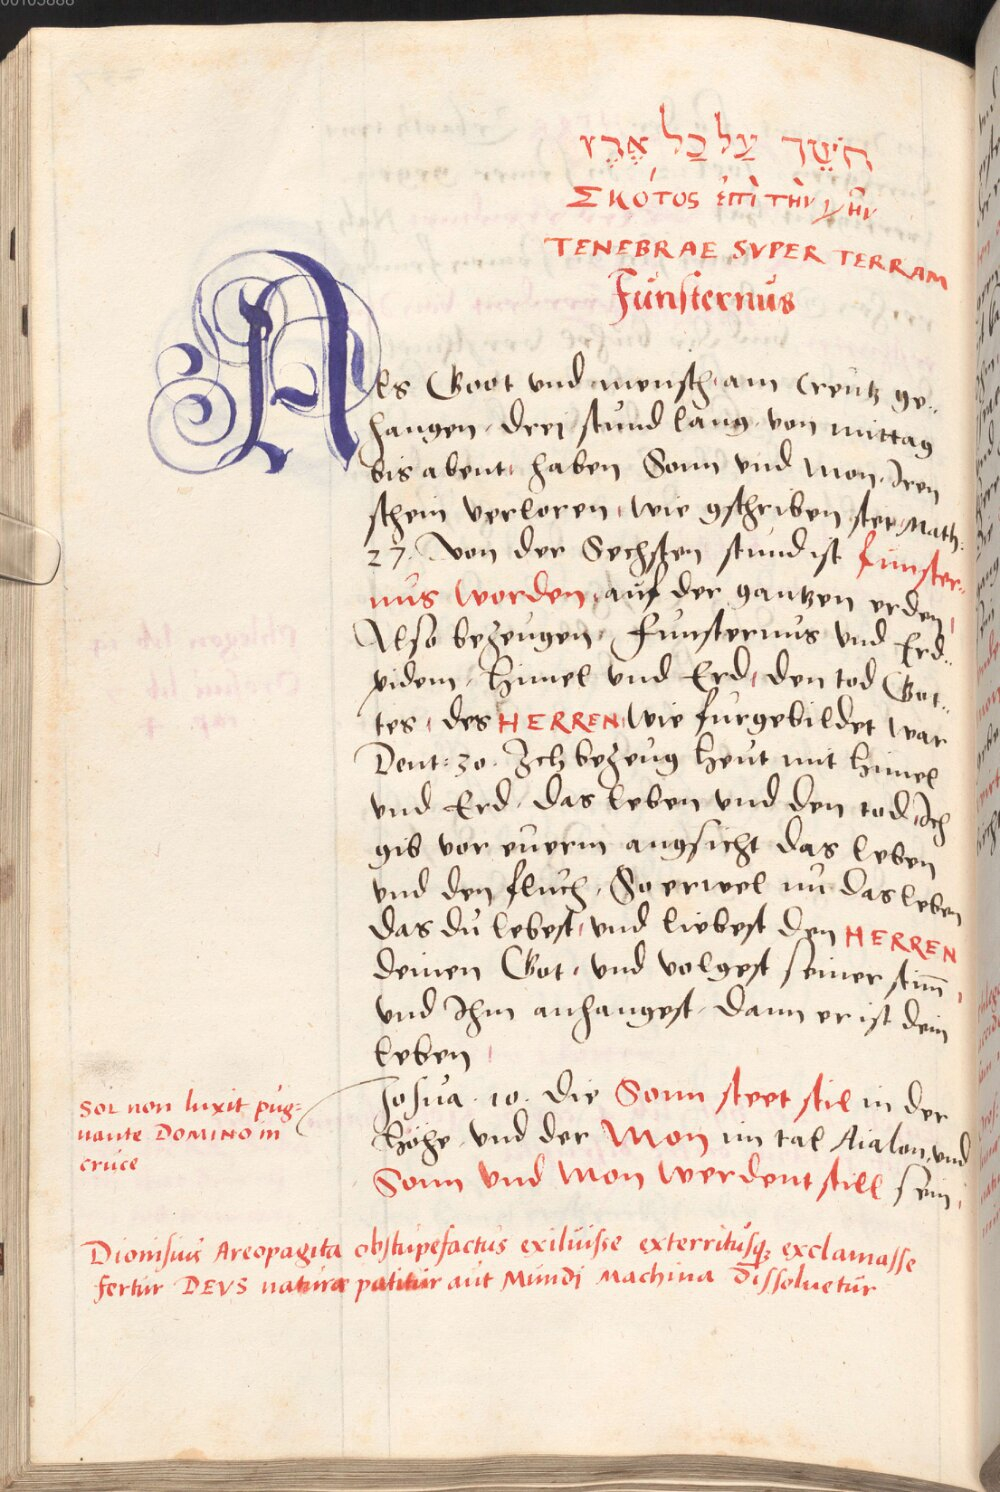 00105888
חֹשֶׁך עַל כַל אֶרֶץ
ΣΚΌΤΟS ἐπὶ τὴν γῆν
TENEBRAE SVPER TERRAM
Fünsternus
Als Goot vnd mensch, am creutz ge-
hangen, drei stund lang, von mittag
bis abent, haben Sonn vnd Mon, Iren
schein verloren, wie gschriben stet, Math:
27. Von der Sechsten stund ist fünster-
nus worden, auf der gantzen erden,
Also bezeugen, Funsternus vnd Erd-
pidem, Himel vnd Erd, den tod Got-
tes, des HERREN, Wie furgebildet war
Deut: 30. Ich bezeug heut mit himel
vnd Erd, das leben vnd den tod, Ich
gib vor euerm angsicht das leben
vnd den fluch, So erwel nu das leben
das du lebest, vnd liebest den HERREN
deinen Got, vnd volgest seiner stim̄,
vnd Ihm anhangest, Dann er ist dein
leben,
Josua. 10. die Sonn steet stil in der
Höhe, vnd der Mon im tal Aialon, vnd
Sonn vnd Mon werdent still sein,
SOL non luxit pug-
nante DOMINO in
cruce
Dionisius Areopagita obstupefactus exiluisse exterritusq; exclamasse
fertur DEVS naturæ patitur aut Mundi Machina dissoluetur